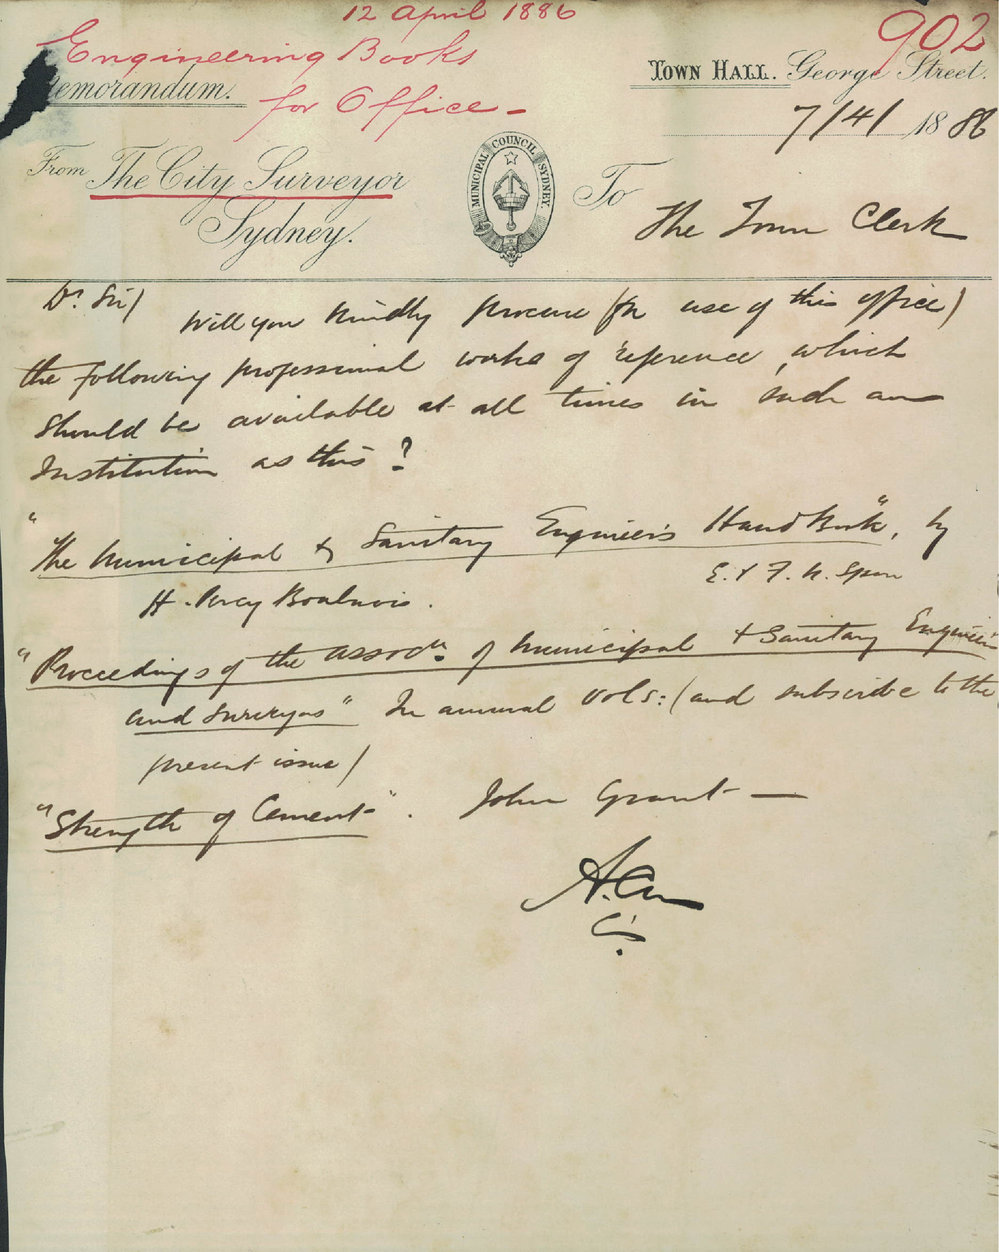 12 April 1886
902
Engineering Books
for Office –
Memorandum.
TOWN HALL. George Street.
7/4/ 1886
From The City Surveyor
Sydney.
MUNICIPAL COUNCIL SYDNEY.
To
The Town Clerk
Dr. Sir/
Will you kindly procure (for use of this office)
the following professional works of reference, which
should be available at all times in such an
Institution as this?
"The Municipal & Sanitary Engineer's Hand Book", by
E. & F. N. Spon
H. Percy Boulnois.
"Proceedings of the Assocn. of Municipal & Sanitary Engineers
and Surveyors" In annual vols: (and subscribe to the
present issue)
"Strength of Cement". John Grant —
C.S.